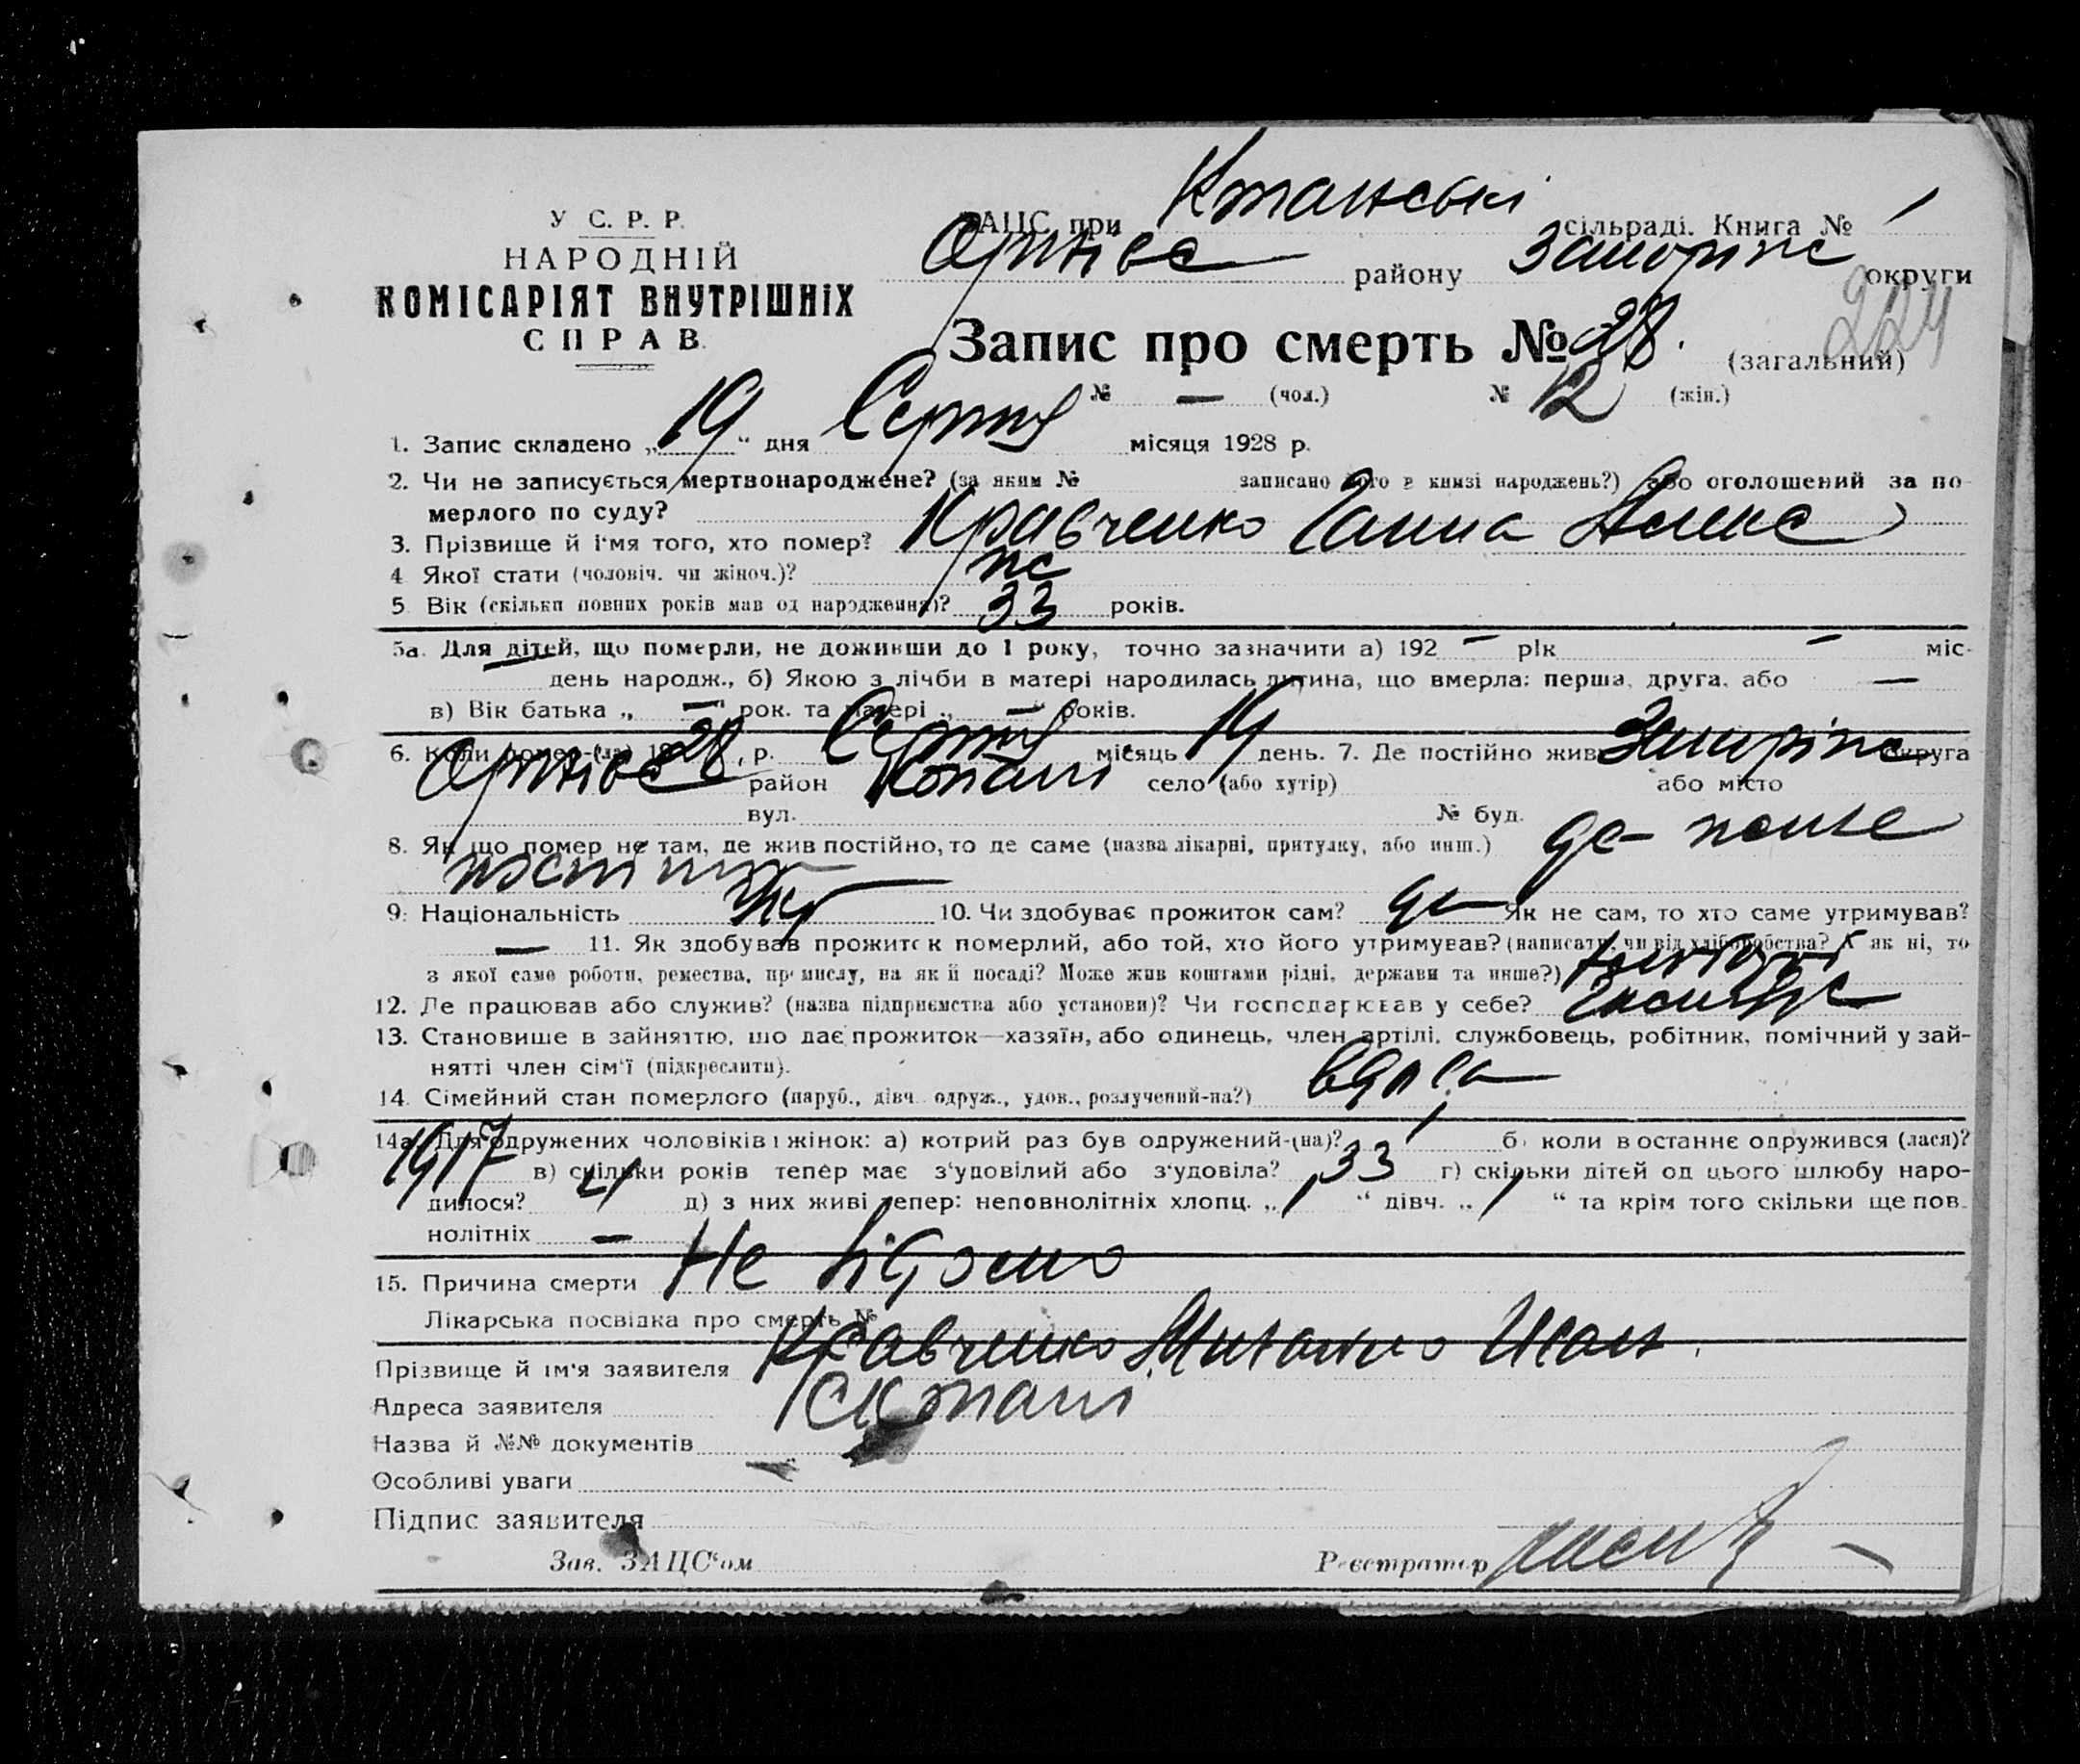 У С. Р. Р.
НАРОДНІЙ
КОМІСАРІЯТ ВНУТРІШНІХ
СПРАВ.
ЗАЦС при сільраді. Книга № 1
району округи
224
Запис про смерть № 28. (загальний)
№ — (чол.) № 12 (жін.)
1. Запис складено „19“ дня Серпня місяця 1928 р.
2. Чи не записується мертвонароджене? (за яким № записано його в книзі народжень?) або оголошений за по-
мерлого по суду?
3. Прізвище й ім'я того, хто помер? Кравченко Ганна
4. Якої стати (чоловіч. чи жіноч.)?
5. Вік (скільки повних років мав од народження)? 33 років.
5а. Для дітей, що померли, не доживши до 1 року, точно зазначити а) 192 — рік — міс-
день народж., б) Якою з лічби в матері народилась дитина, що вмерла: перша, друга, або —
в) Вік батька „—“ рок. та матері „—“ років.
6. Коли помер-(ла) 1928, р. Серпня місяць 19 день. 7. Де постійно жив округа
район Копані село (або хутір) або місто
вул. № буд.
8. Як що помер не там, де жив постійно, то де саме (назва лікарні, притулку, або инш.)
9. Національність Укр 10. Чи здобуває прожиток сам? Як не сам, то хто саме утримував?
— 11. Як здобував прожиток померлий, або той, хто його утримував? (написати, чи від хліборобства? А як ні, то
з якої саме роботи, ремества, промислу, на якій посаді? Може жив коштами рідні, держави та инше?)
12. Де працював або служив? (назва підприємства або установи)? Чи господарював у себе?
13. Становище в зайняттю, що дає прожиток—хазяїн, або одинець, член артілі, службовець, робітник, помічний у зай-
нятті член сім'ї (підкреслити).
14. Сімейний стан померлого (паруб., дівч. одруж., удов., розлучений-на?)
14а. Для одружених чоловіків і жінок: а) котрий раз був одружений-(на)? 1 б) коли востаннє одружився (лася)?
1917 в) скільки років тепер має з'удовілий або з'удовіла? 33 г) скільки дітей од цього шлюбу наро-
дилося? 4 д) з них живі тепер: неповнолітніх хлопц. „1“ дівч. „1“ та крім того скільки ще пов-
нолітніх —
15. Причина смерти Не відомо
Лікарська посвідка про смерть №
Прізвище й ім'я заявителя Кравченко
Адреса заявителя
Назва й №№ документів
Особливі уваги
Підпис заявителя
Зав. ЗАЦС'ом Реєстратор